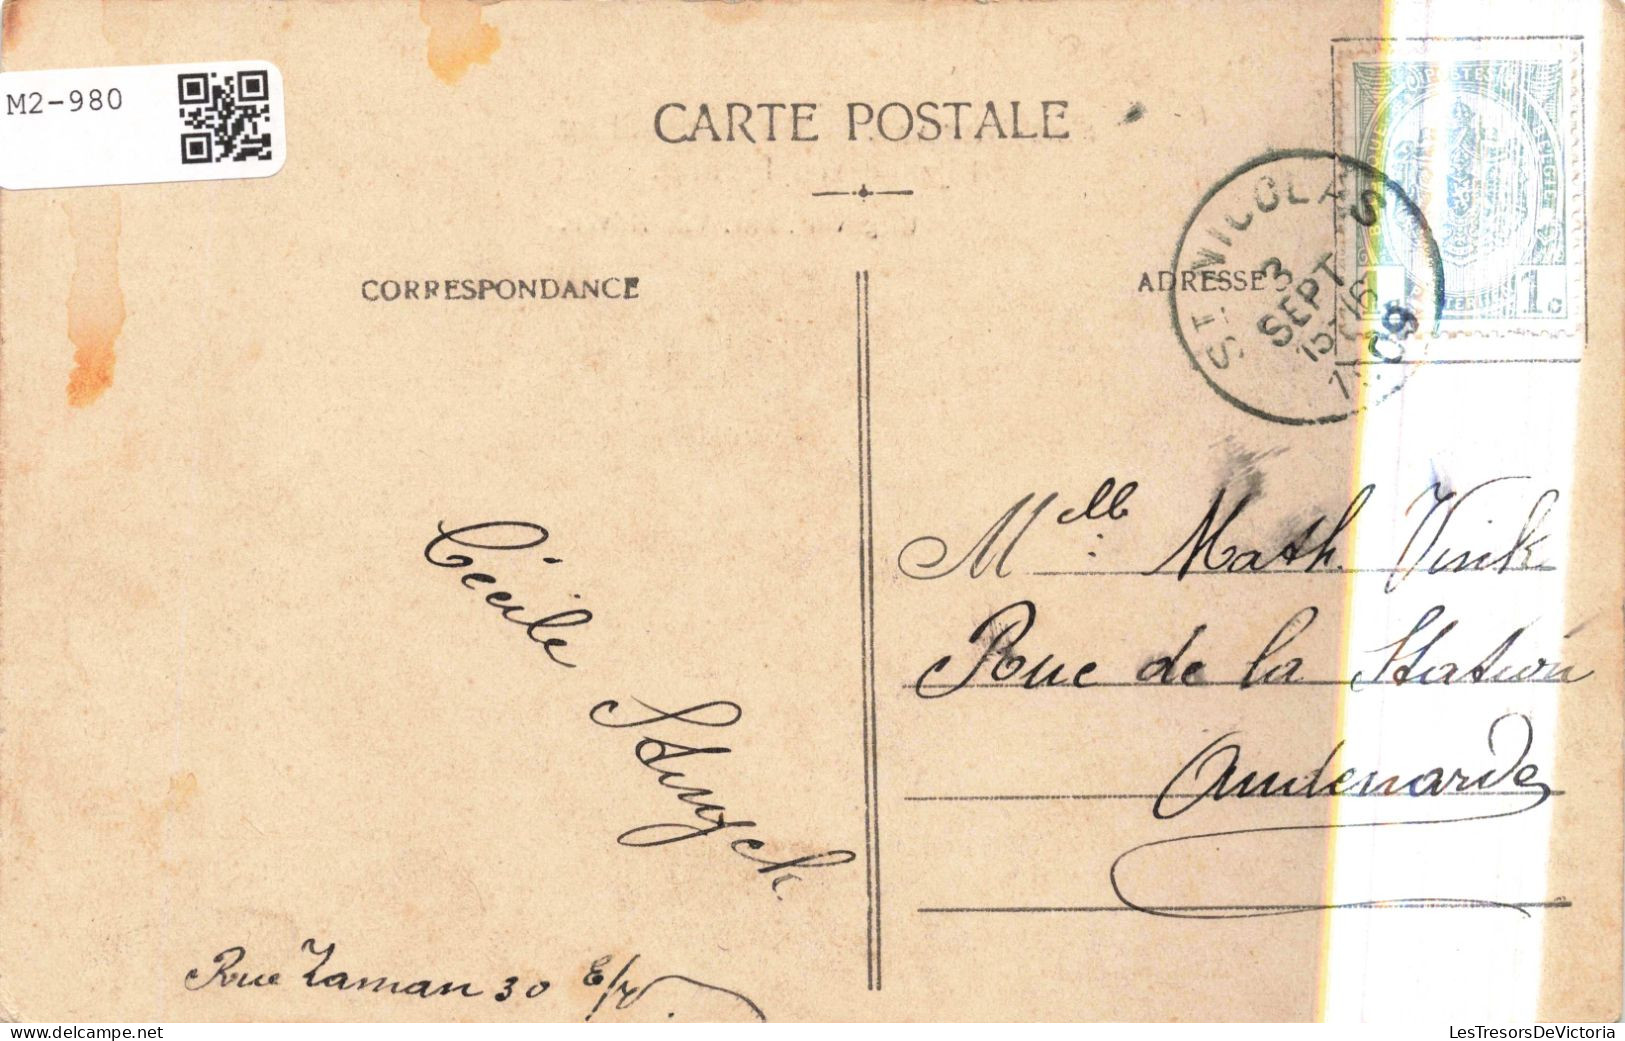 M2-980
CARTE POSTALE
CORRESPONDANCE
ADRESSE
ST-NICOLAS
3
SEPT
15-16
1909
POSTES
BELGIQUE
BELGIE
1c
Melle Math. Vink
Rue de la Station
Audenarde
Cécile
Struyck
Rue Zaman 30 E/V.
LesTresorsDeVictoria
delcampe.net